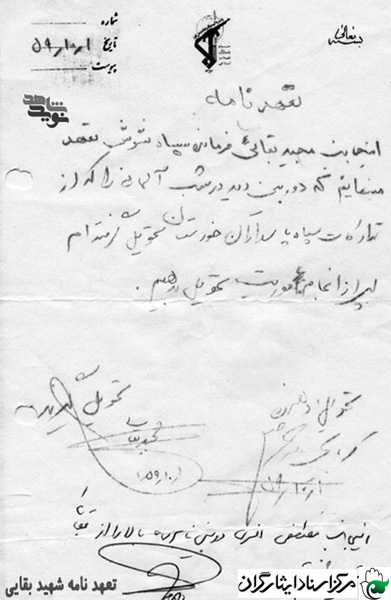 بسمه تعالی
شماره
تاریخ ۵۹/۱۰/۱
پیوست
نوید شاهد
تعهد نامه
اینجانب مجید بقائی فرمانده سپاه شوش تعهد
مینمایم که دوربین دید در شب آلمانی را که از
تدارکات سپاه پاسداران خوزستان تحویل گرفته ام
پس از انجام مأموریت تحویل بدهیم.
تحویل دهنده
تحویل گیرنده
مجید بقائی
۵۹/۱۰/۱
اینجانب
بالا را از
تعهد نامه شهید بقایی
مرکز اسناد ایثارگران